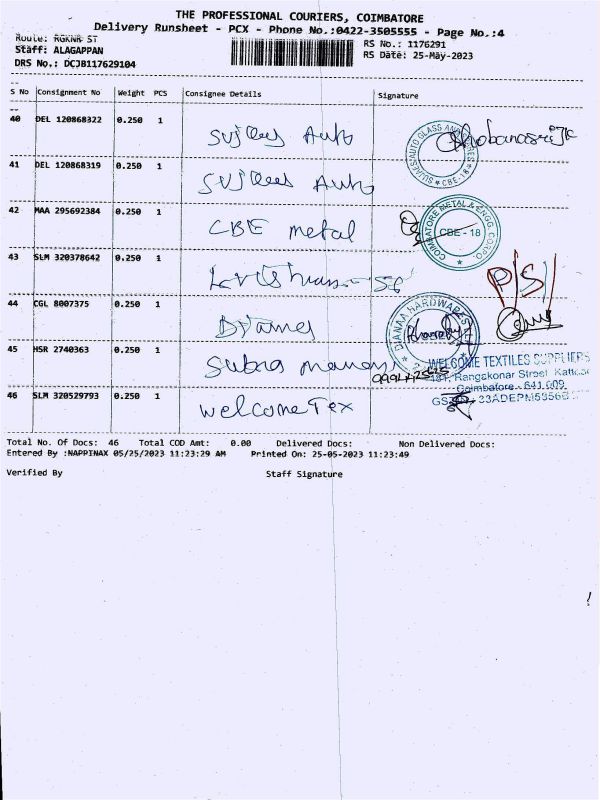 THE PROFESSIONAL COURIERS, COIMBATORE
Delivery Runsheet - PCX - Phone No.:0422-3505555 - Page No.:4
Route: RGKNR ST
Staff: ALAGAPPAN
DRS No.: DCJB117629104
RS No.: 1176291
RS Date: 25-May-2023
S No Consignment No Weight PCS Consignee Details Signature
40 DEL 120868322 0.250 1
Sujees Auto
41 DEL 120868319 0.250 1
Sujees Auto
42 MAA 295692384 0.250 1
CBE metal
CBE - 18
COIMBATORE METAL & ENGG. CORPO.
43 SLM 320378642 0.250 1
44 CGL 8007375 0.250 1
DIANAA HARDWARES
45 HSR 2740363 0.250 1
Subra
WELCOME TEXTILES SUPPLIERS
Rangakonar Street
Coimbatore - 641 009
46 SLM 320529793 0.250 1
welcome Tex
Total No. Of Docs: 46 Total COD Amt: 0.00 Delivered Docs: Non Delivered Docs:
Entered By :NAPPINAX 05/25/2023 11:23:29 AM Printed On: 25-05-2023 11:23:49
Verified By Staff Signature